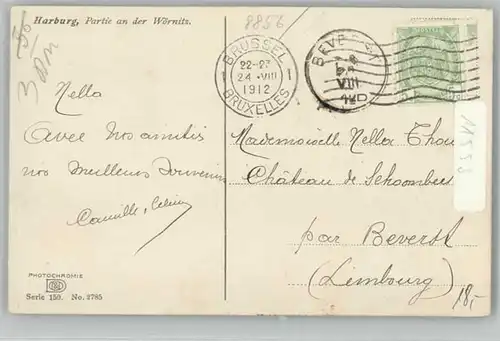 8856
Harburg, Partie an der Wörnitz.
3 Bm
BRUSSEL
22-23
24 · VIII
1912
BRUXELLES
VIII
Nella
Avec nos amitiés
nos meilleurs souvenirs
Camille, Céline
Mademoiselle Nella
Château de Schoonbee
par Beverst
(Limbourg)
PHOTOCHROMIE
Serie 159. No. 2785
18,-